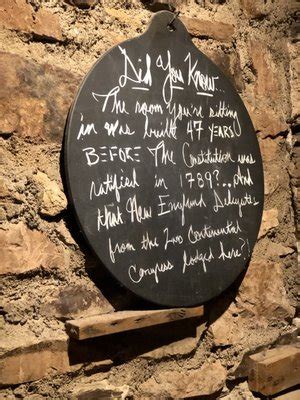 Did You Know...
The room you're sitting
in was built 47 YEARS
BEFORE The Constitution was
ratified in 1789?...And
that New England Delegates
from the 2nd Continental
Congress lodged here?!